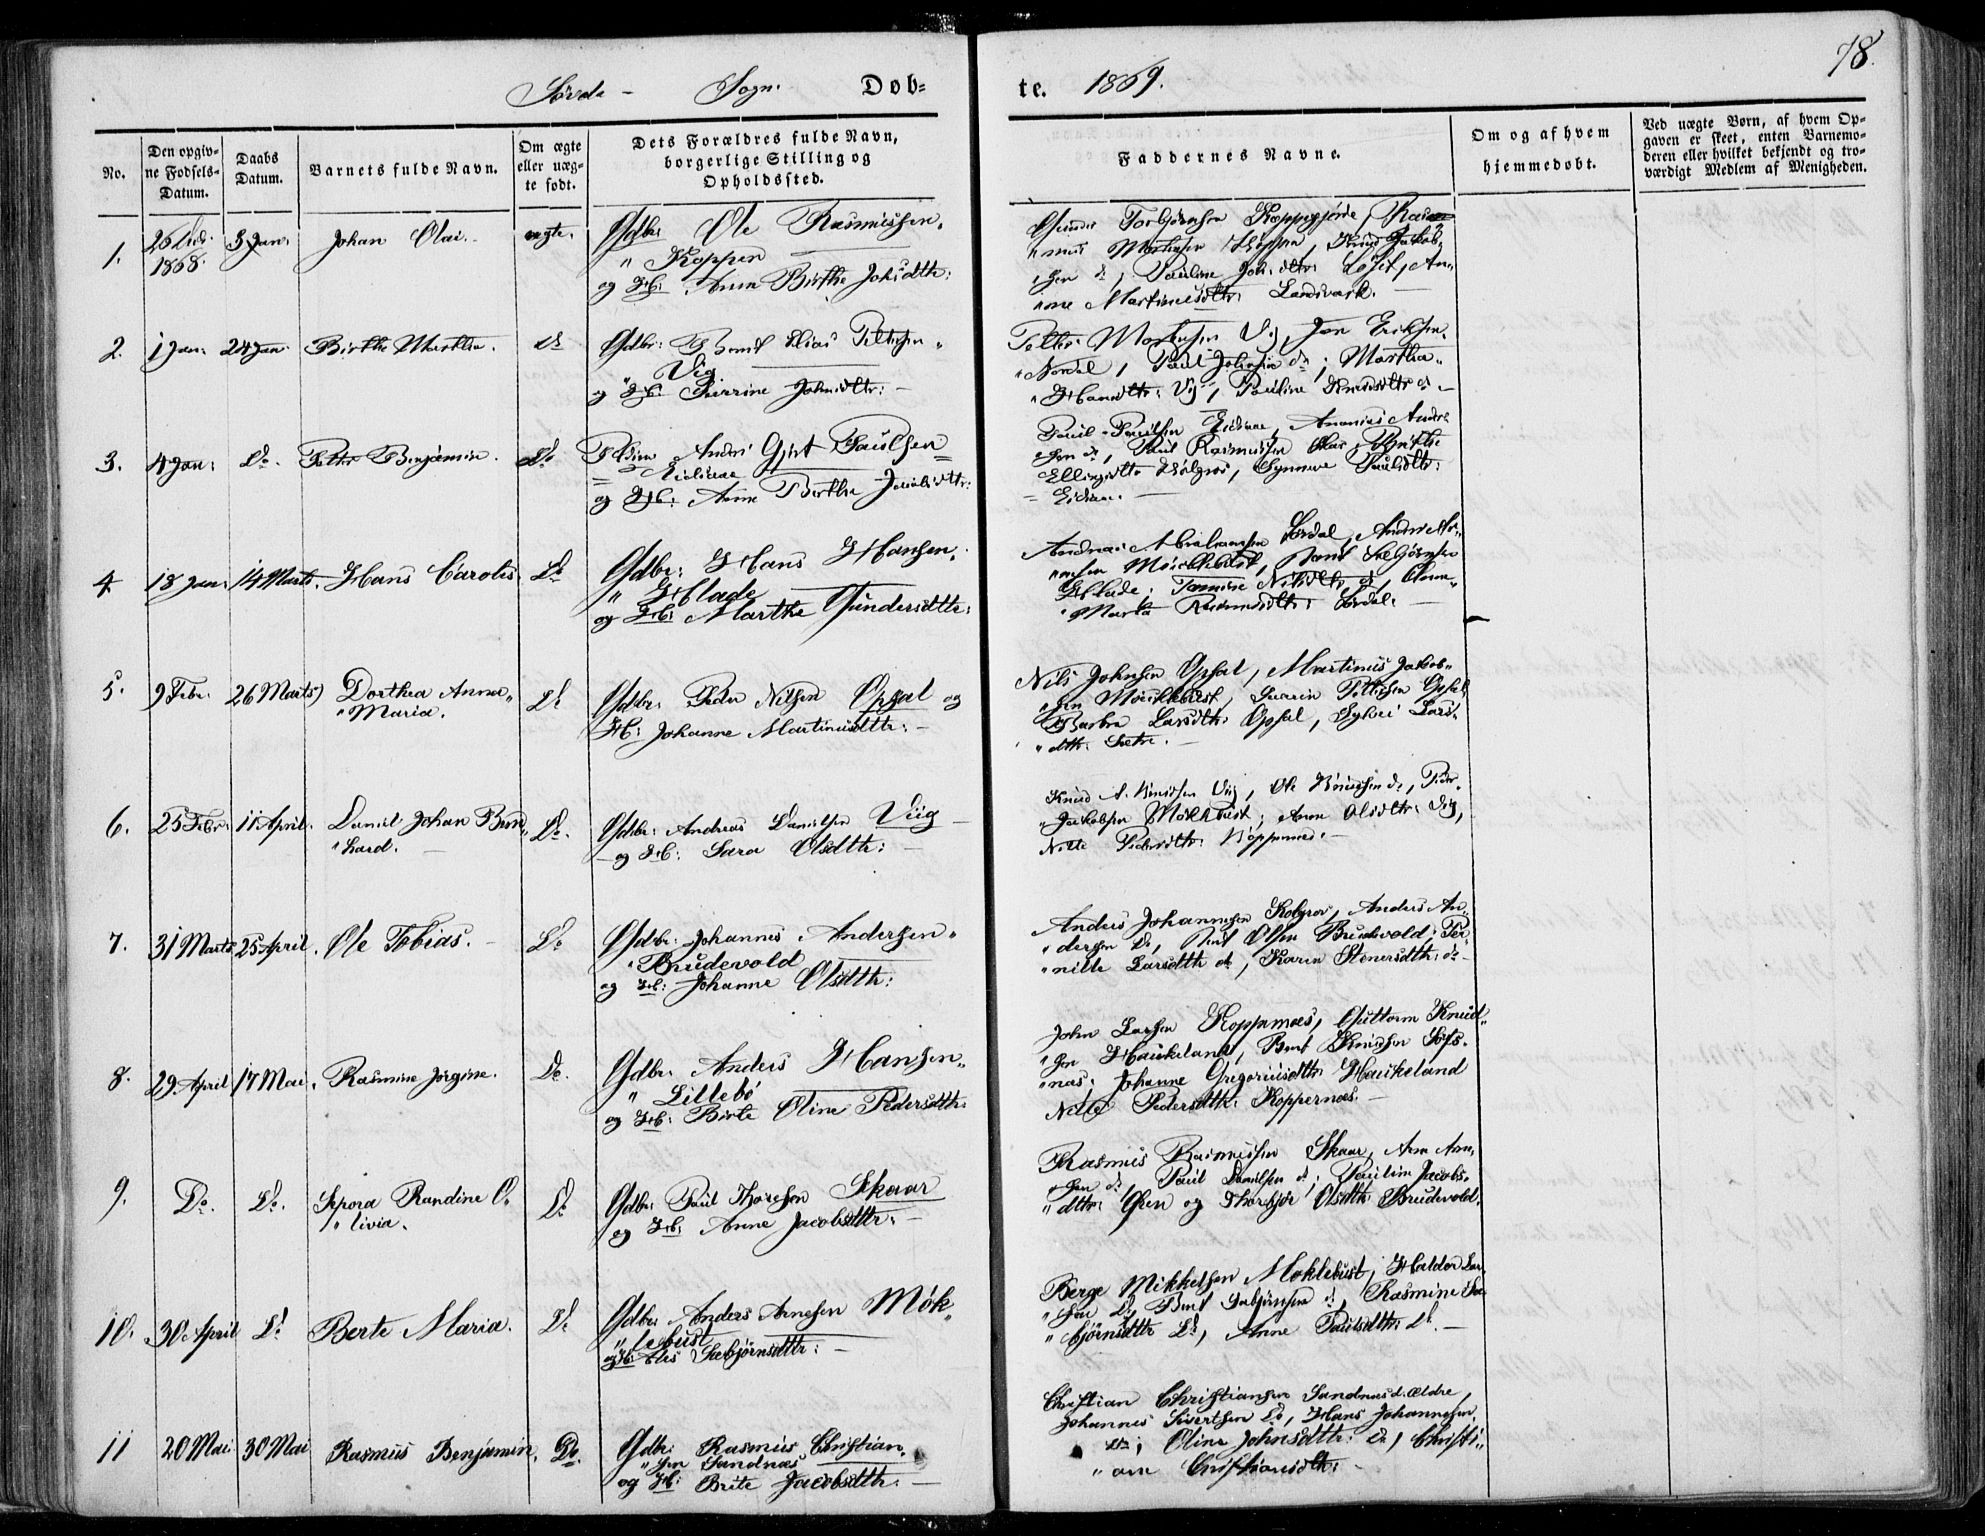 78.
Søvde - Sogn. Døb=
te. 1869.
No.
Den opgiv-
ne Fødsels-
Datum.
Daabs
Datum.
Barnets fulde Navn.
Om ægte
eller uæg-
te født.
Dets Forældres fulde Navn,
borgerlige Stilling og
Opholdssted.
Faddernes Navne.
Om og af hvem
hjemmedøbt.
Ved uægte Børn, af hvem Op-
gaven er skeet, enten Barnemo-
deren eller hvilket bekjendt og tro-
værdigt Medlem af Menigheden.
1. 1868. 3 Jan: Johan Olai. ægte. Gdbr: Ole Rasmussen,
" Koppen
og Hb: Anna Birthe Joh:dtr:
Gunder Torbjørnsen Koppegjerde, Ras-
"mus Mortensen Koppen, Knud Jakob-
"sen do, Pauline Joh:dtr:
"ne Martinusdtr: Landsværk.
2. 1 Jan: 24 Jan: Birthe Marthe. do Gdbr: Bernt Elias Pettersen
" Vig
og Hb: Johnsdtr:
Petter Mortensen Vig, Jon Eriksen
"Nordal, Paul Johnsen do; Martha
"Hansdtr: Vig, Pauline Knudsdtr do
3. 4 Jan: Do. Petter Benjamin. Do Andr: Gjert Paulsen
= Eidsaae
og Hb: Anne Berthe Jacobsdtr:
Paul Paulsen Eidsaae, Ananias Andr:
"sen do, Paul Rasmussen Skar, Birthe
Ellingsdtr: Synneve Paulsdtr:
= Eidsaae.
4. 18 Jan: 14 Marts. Hans Carolis. Do Gdbr: Hans Hansen,
" Hlade
og Hb: Marthe Gundersdtr:
Andreas Abrahamsen Sørdal,
Møcklebust, Bernt Sæbjørnsen
Hlade; Nilsdtr: do,
"Marta Rasmusdtr: Sørdal.
5. 9 Febr: 26 Marts) Dorthea Anna
"Maria. Do Gdbr: Peder Nilsen Opsal og
Hb: Johanne Martinusdtr:
Nils Johnsen Opsal, Martinus Jakob-
"sen Møcklebust, Pettersen Opsal
Barbra Larsdtr: Opsal, Sylvei Lars-
"dtr: Sætre.
6. 25 Febr: 11 April. Daniel Johan Bern-
"hard. Do. Gdbr: Andreas Danielsen Viig
og Hb: Sara Olsdtr:
Knud A. Knudsen Viig, Ole Knudsen do, Peder
"Jakobsen Møklebust; Anne Olsdtr: Vig,
Nille Pedersdtr: Koppernæs.
7. 31 Marts 25 April. Ole Tobias. Do Gdbr: Johannes Andersen
"Brudevold
og Hb: Johanne Olsdtr:
Anders Johannesen Anders An-
"dersen do, Bent Olsen Brudevold; Per-
"nille Larsdtr do, Karen Stenersdtr: do
8. 29 April 17 Mai. Rasmine Jørgine. Do. Gdbr: Anders Hansen
" Lillebø
og Hb: Birte Oline Pedersdtr:
John Larsen Koppernæs, Guttorm Knud-
"sen Haukeland, Bent Knudsen Søfs-
"næs; Johanne Gregoriusdtr: Haukeland
Nille Pedersdtr: Koppernæs.
9. Do. Do. Sepora Randine O-
"livia. Do Gdbr: Paul Thoresen Skaar
og Hb: Anne Jacobsdtr:
Rasmus Rasmussen Skaar, Arne Arne-
"sen do, Paul Danielsen do; Pauline Jacobs-
"dtr: og Olsdtr Brudevold.
10. 30 April Do Berte Maria. Do Gdbr: Anders Arnesen Møk-
"lebust
og Hb: Sæbjørnsdtr:
Berge Mikkelsen Moklebust, Haldor Lar-
"sen Do, Bent Sæbjørnsen do, Rasmine Sæ-
"bjørnsdtr Do, Anne Paulsdtr: Do.
11 20 Mai 30 Mai Rasmus Benjamin. Do. Gdbr: Rasmus Christian-
"sen Sandnæs
og Hb: Brite Jacobsdtr:
Christian Christiansen Sandnæs d. Ældre,
Johannes Sivertsen Do, Hans Johannesen
Do; Oline Johnsdtr: Do, Christi-
"ane Christiansdtr: